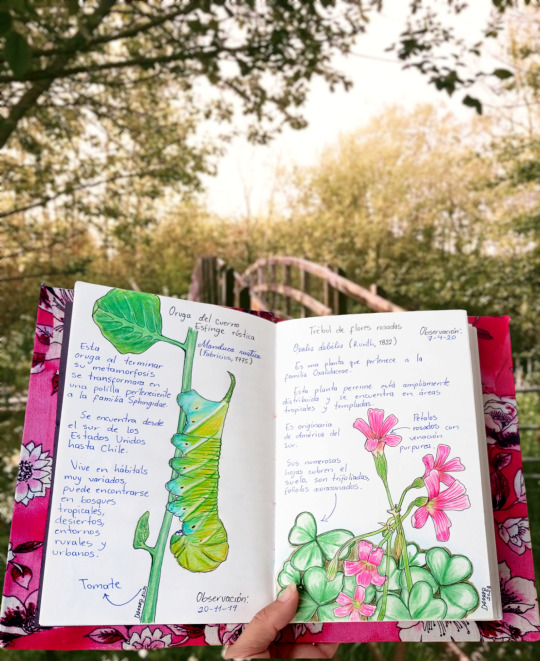 Oruga del cuerno
Esfinge rústica
Manduca rustica
(Fabricius, 1775)
Esta
oruga al terminar
su metamorfosis
se transformara en
una polilla perteneciente
a la familia Sphingidae.
Se encuentra desde
el sur de los
Estados Unidos
hasta Chile.
Vive en hábitats
muy variados,
puede encontrarse
en bosques
tropicales,
desiertos,
entornos
rurales y
urbanos.
Tomate
Observación:
20-11-19
Trébol de flores rosadas
Oxalis debilis (Kunth, 1822)
Observación:
7-4-20
Es una planta que pertenece a la
familia Oxalidaceae.
Esta planta perenne está ampliamente
distribuida y se encuentra en áreas
tropicales y templadas.
Es originaria
de américa del
sur.
Pétalos
rosados con
venación
purpurea.
Sus numerosas
hojas cubren el
suelo, son trifoliadas,
foliolos